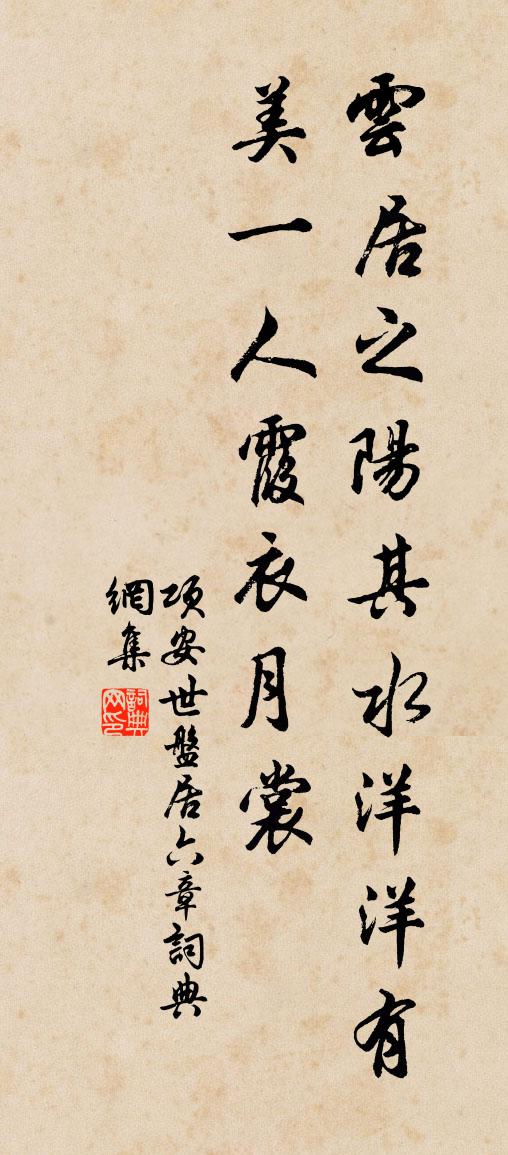 雲居之陽其水洋洋有
美一人霞衣月裳
項安世盤居六章詞典
網集
詞典
网印